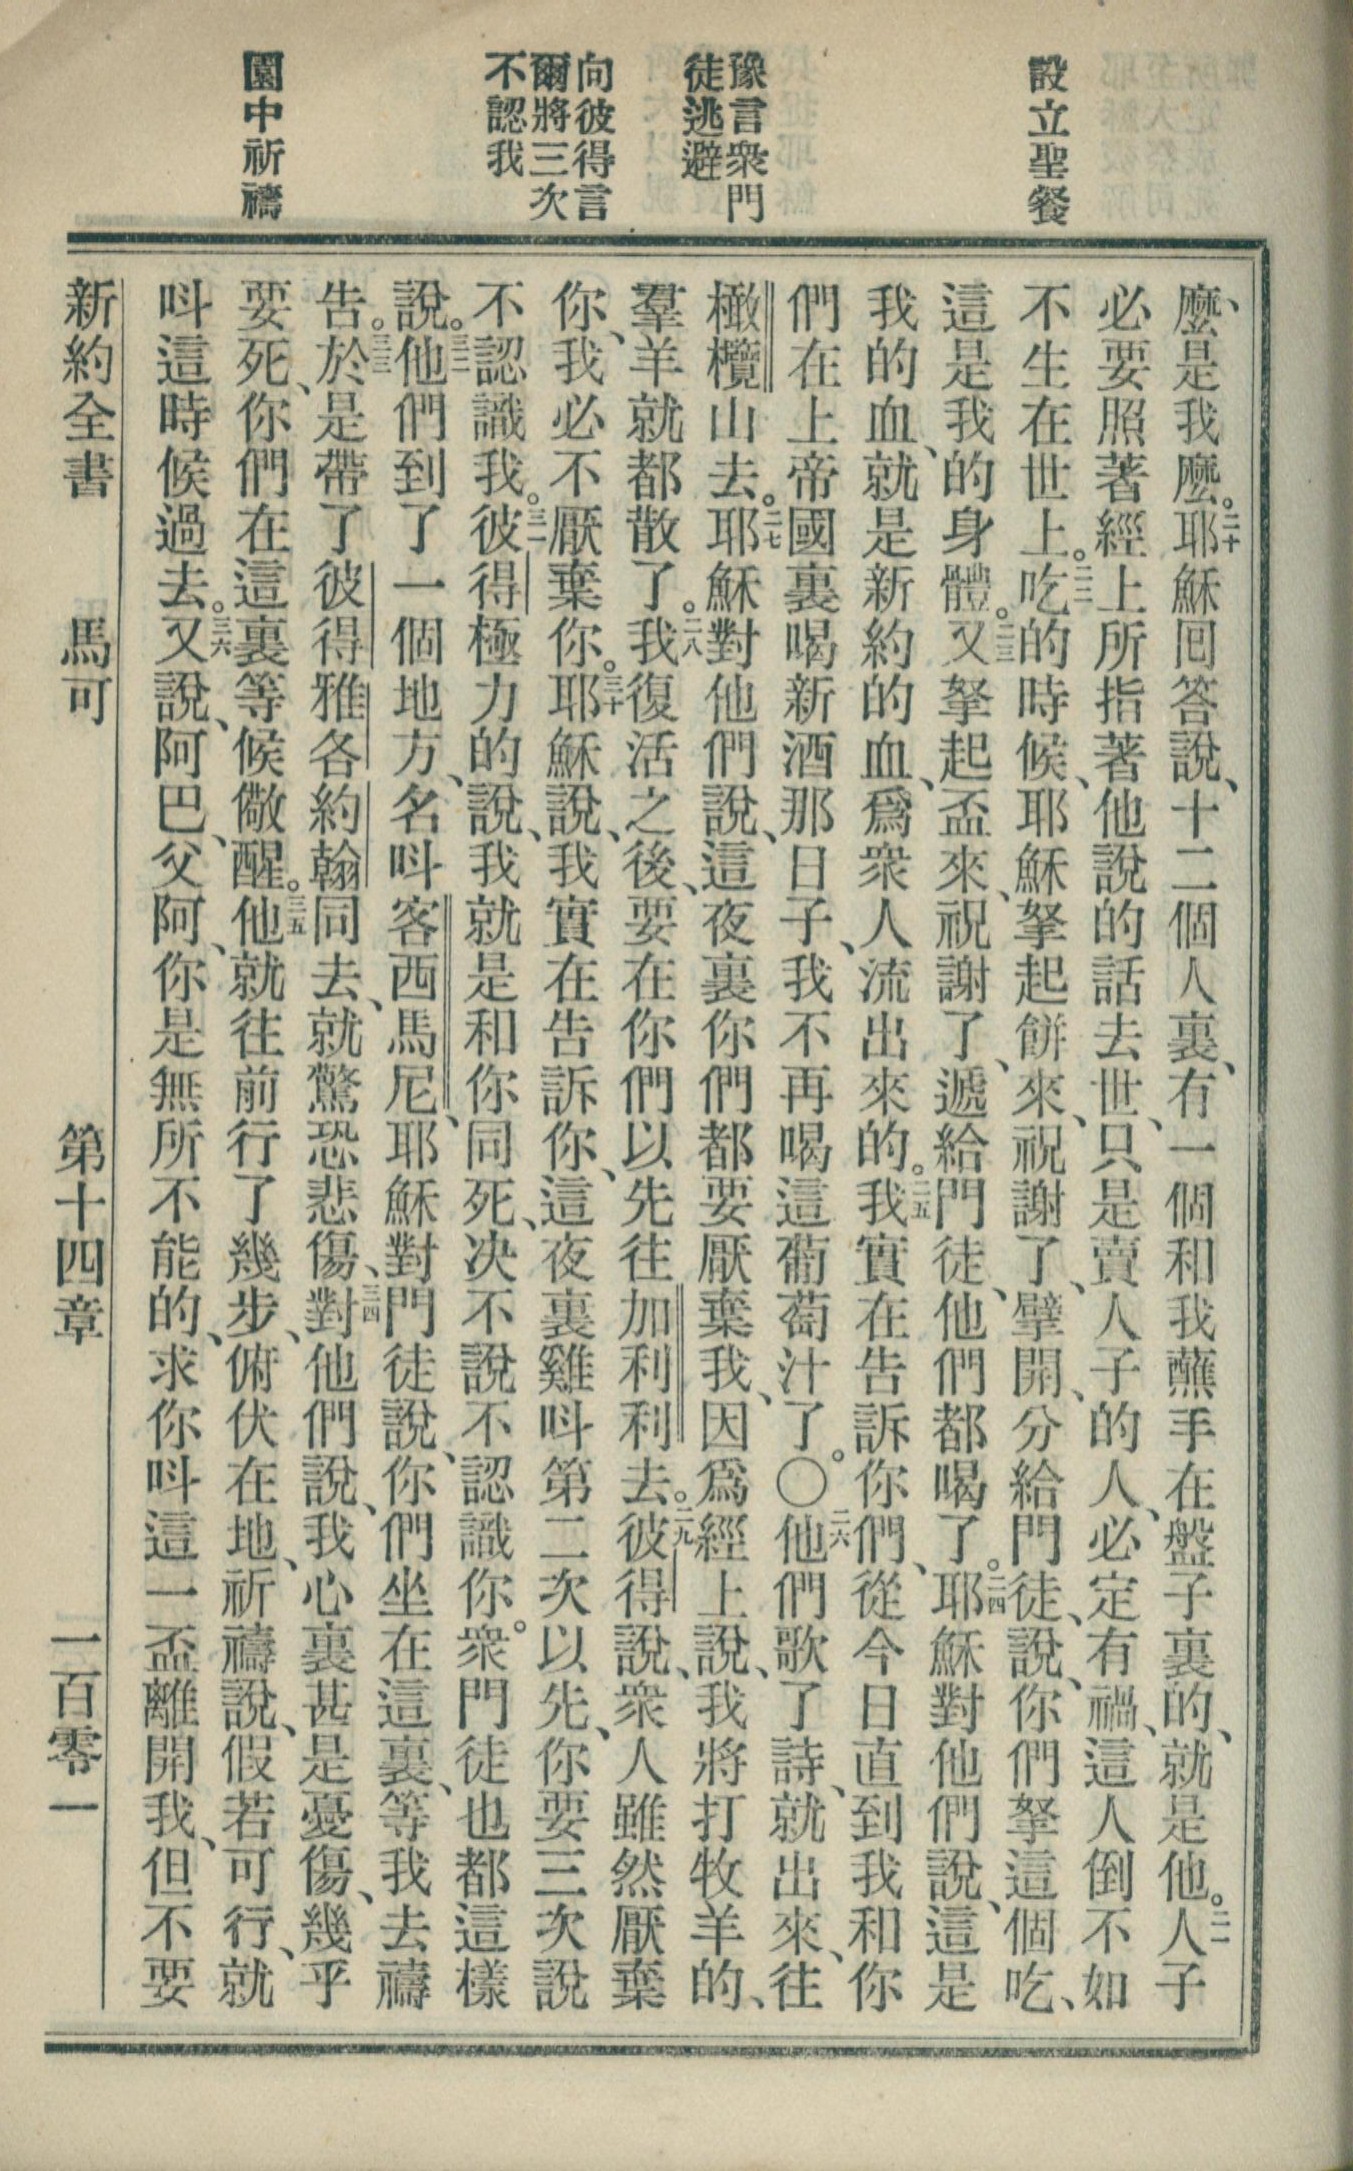 設立聖餐
豫言衆門
徒逃避
向彼得言
爾將三次
不認我
園中祈禱
麼、是我麼。二十耶穌囘答說、十二個人裏、有一個和我蘸手在盤子裏的、就是他。二一人子
必要照著經上所指著他說的話去世、只是賣人子的人、必定有禍、這人倒不如
不生在世上。二二吃的時候、耶穌拏起餅來、祝謝了、擘開、分給門徒、說、你們拏這個吃、
這是我的身體。二三又拏起盃來、祝謝了、遞給門徒、他們都喝了。二四耶穌對他們說、這是
我的血、就是新約的血、爲衆人流出來的。二五我實在告訴你們、從今日直到我和你
們在上帝國裏喝新酒那日子、我不再喝這葡萄汁了。〇二六他們歌了詩、就出來、往
橄欖山去。二七耶穌對他們說、這夜裏你們都要厭棄我、因爲經上說、我將打牧羊的、
羣羊就都散了。二八我復活之後、要在你們以先往加利利去。二九彼得說、衆人雖然厭棄
你、我必不厭棄你。三十耶穌說、我實在告訴你、這夜裏雞呌第二次以先、你要三次說
不認識我。三一彼得極力的說、我就是和你同死、决不說不認識你。衆門徒也都這樣
說。三二他們到了一個地方、名呌客西馬尼、耶穌對門徒說、你們坐在這裏、等我去禱
告。三三於是帶了彼得雅各約翰同去、就驚恐悲傷、三四對他們說、我心裏甚是憂傷、幾乎
要死、你們在這裏等候儆醒。三五他就往前行了幾步、俯伏在地、祈禱說、假若可行、就
呌這時候過去。三六又說、阿巴、父阿、你是無所不能的、求你呌這一盃離開我、但不要
新約全書 馬可 第十四章 一百零一